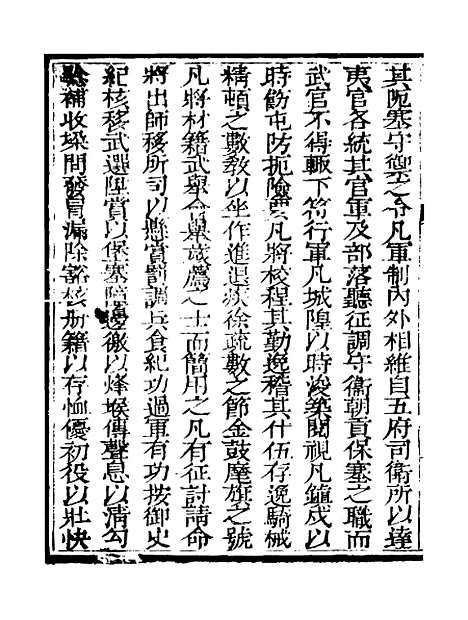 其阨塞守禦之令凡軍制內外相維自五府司衛所以達
夷官各統其官軍及部落聽征調守衛朝貢保塞之職而
武官不得輒下符行軍凡城隍以時浚築閱視凡鎮戍以
時飭屯防扼險要凡將校程其勤逸稽其什伍存逸騎械
精頓之數敎以坐作進退疾徐疏數之節金鼓麾旗之號
凡將材籍武舉會舉薦之士而簡用之凡有征討請命
將出師移所司以懸賞罰調兵食紀功過軍有功按御史
紀核移武選陞賞以保塞障邊徼以烽堠傳聲息以清勾
補收垜問發冒漏除豁核册籍以存恤優初役以壯快